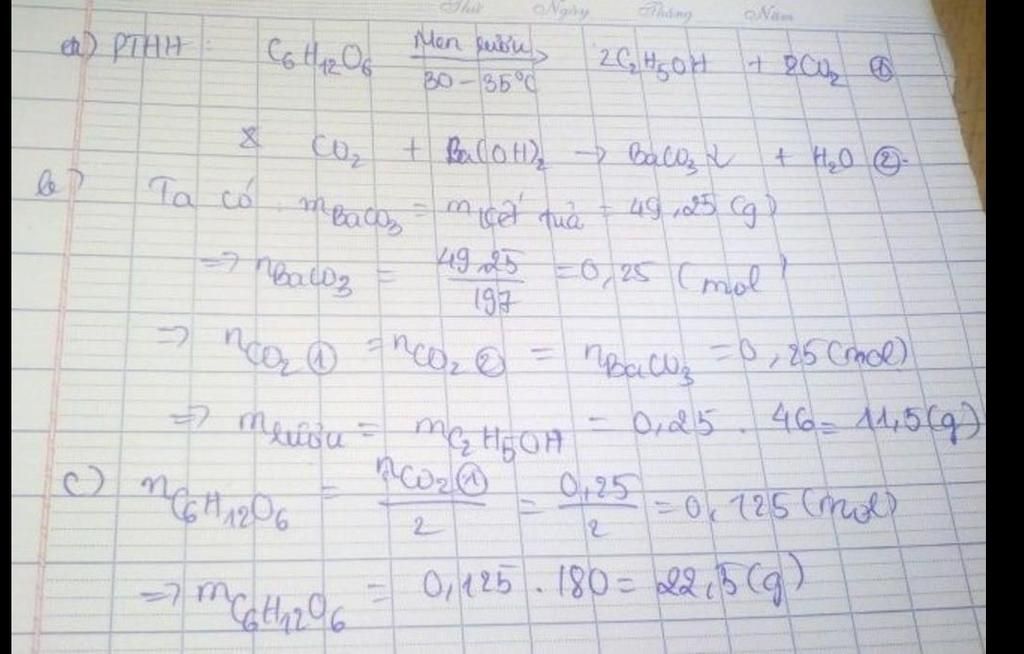 Thứ Ngày Tháng Năm
a) PTHH: C₆H₁₂O₆ Men rượu 30-35°C → 2C₂H₅OH + 2CO₂ ①
CO₂ + Ba(OH)₂ → BaCO₃↓ + H₂O ②.
b) Ta có m BaCO₃ = m kết tủa = 49,25 (g)
=> n BaCO₃ = 49,25/197 = 0,25 (mol)
=> n CO₂ ① = n CO₂ ② = n BaCO₃ = 0,25 (mol)
=> m rượu = m C₂H₅OH = 0,25 . 46 = 11,5 (g)
c) n C₆H₁₂O₆ = n CO₂ ①/2 = 0,25/2 = 0,125 (mol)
=> m C₆H₁₂O₆ = 0,125 . 180 = 22,5 (g)